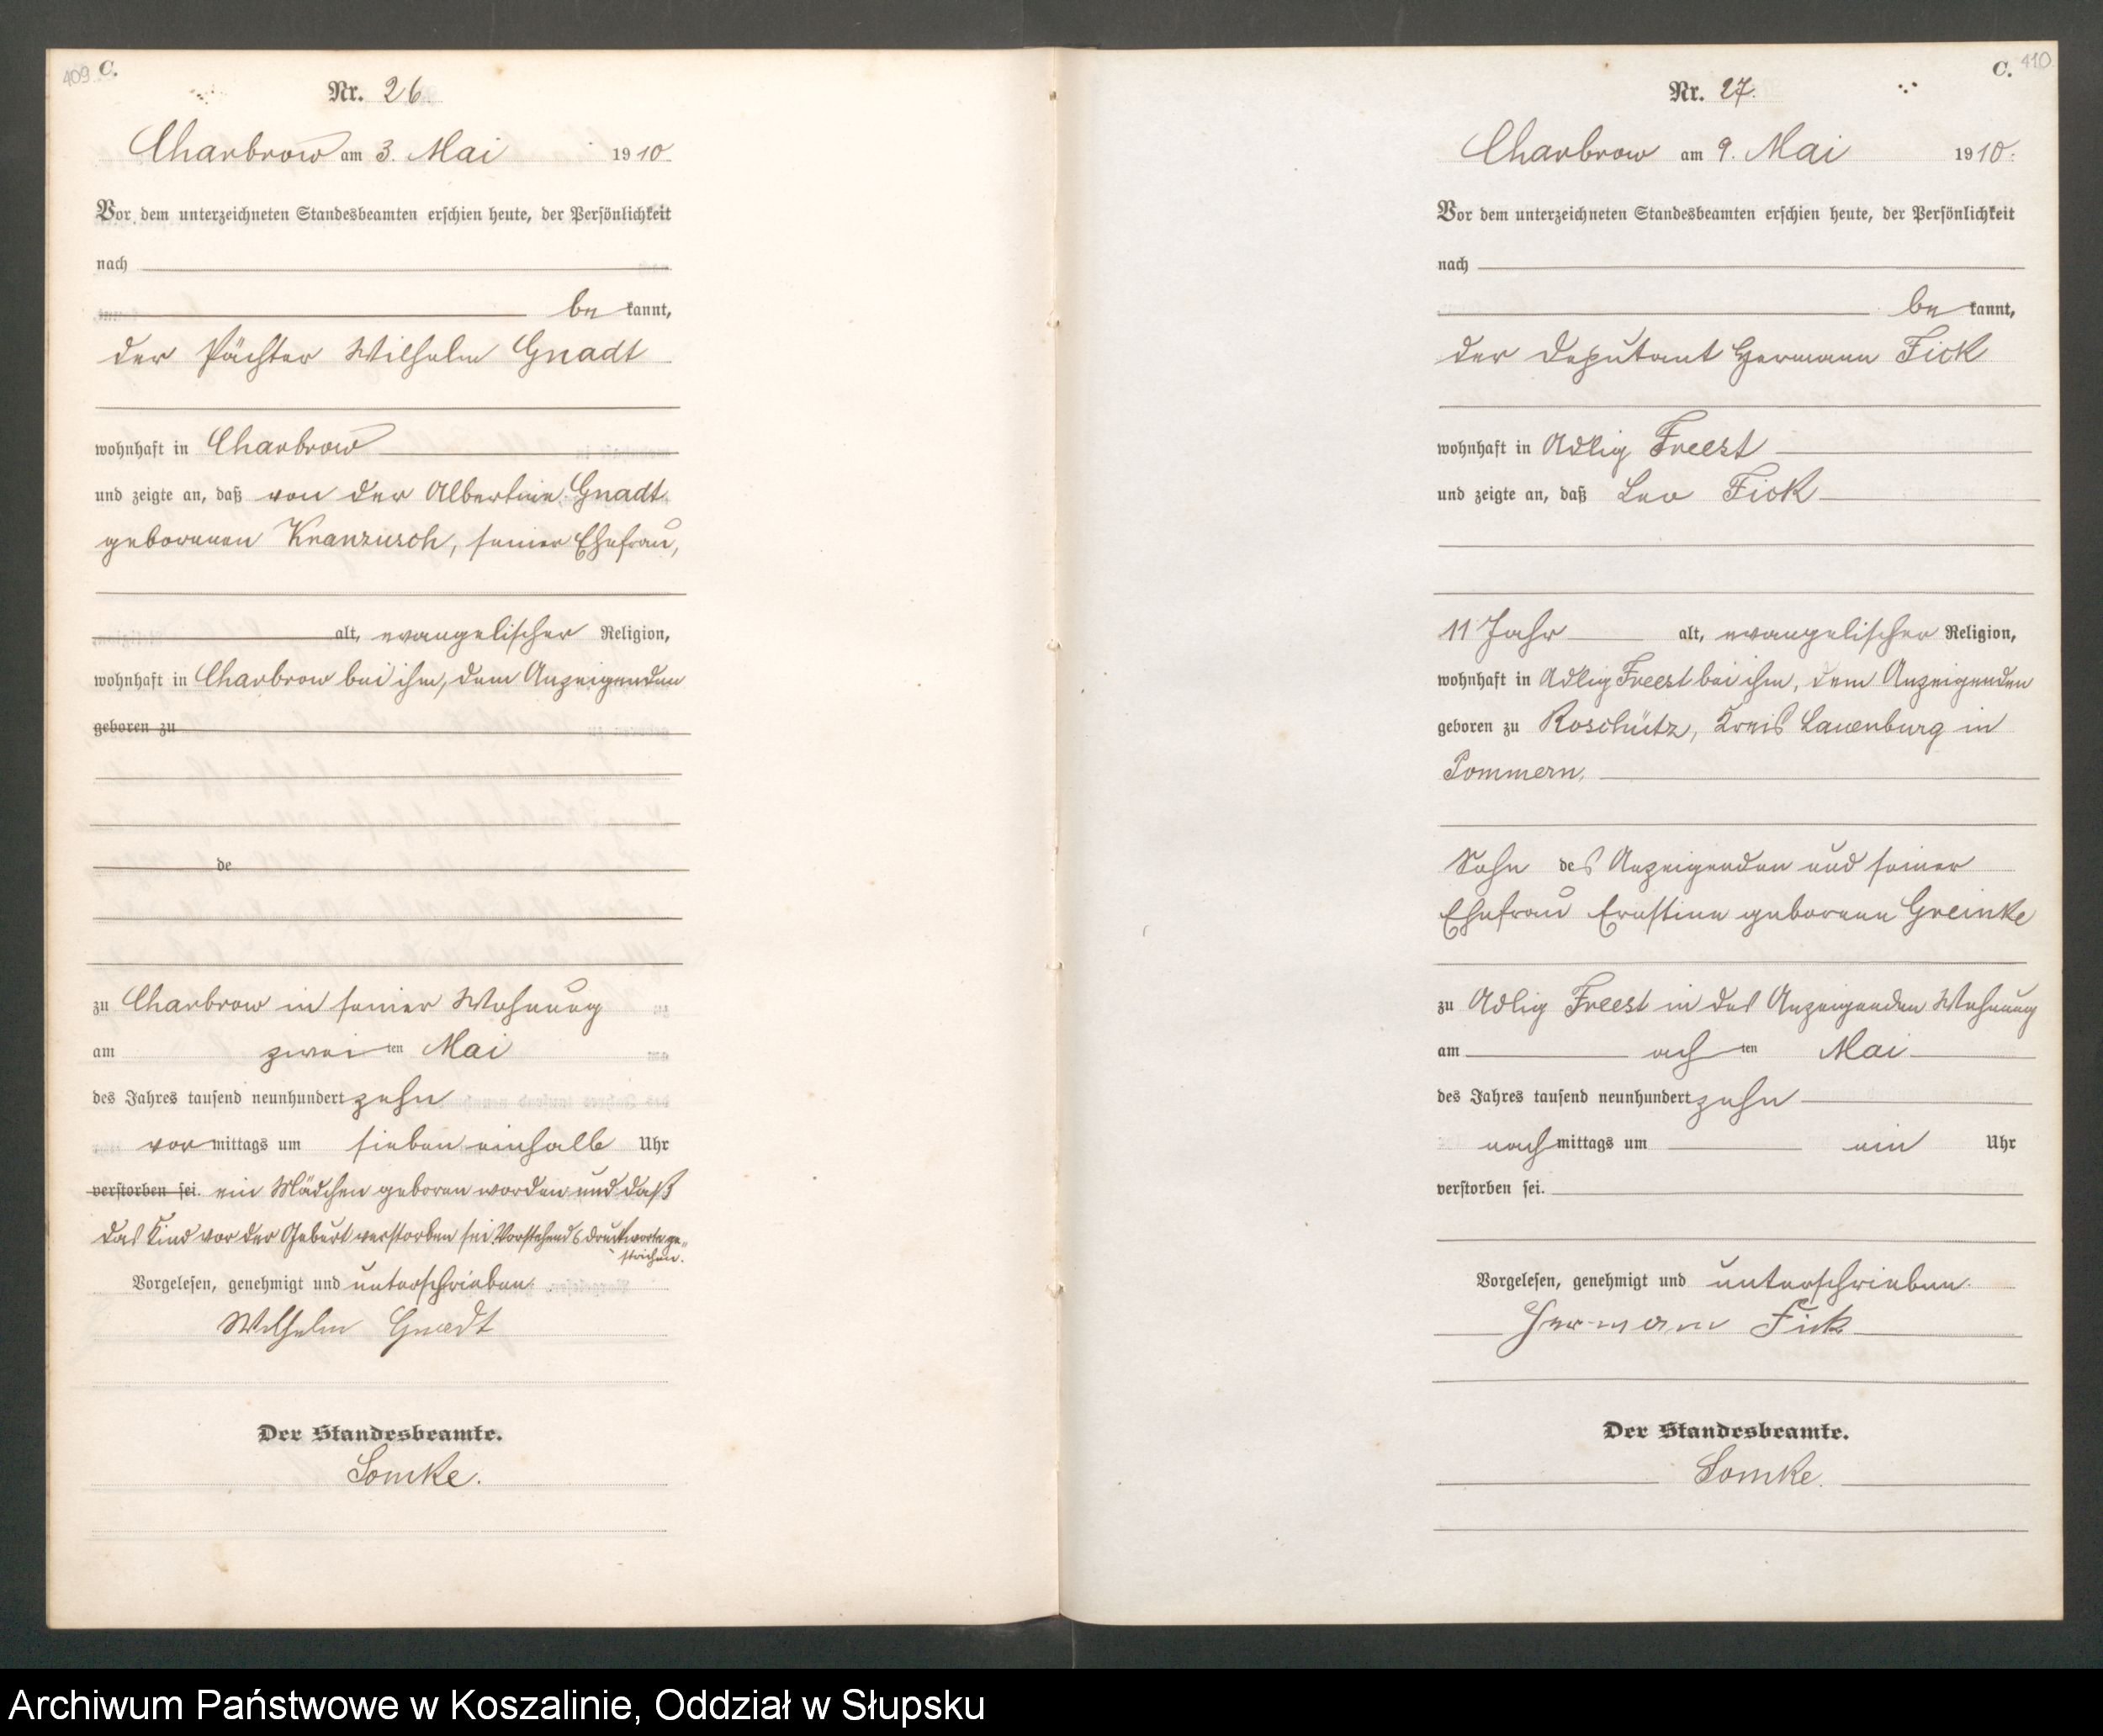 409 C.
Nr. 26.
Charbrow am 3. Mai 1910.
Vor dem unterzeichneten Standesbeamten erschien heute, der Persönlichkeit
nach
be kannt,
der Pächter Wilhelm Gnadt
wohnhaft in Charbrow
und zeigte an, daß von der Albertine Gnadt
geborenen Kranzusch, seiner Ehefrau,
alt, evangelischer Religion,
wohnhaft in Charbrow bei ihm, dem Anzeigenden
geboren zu
de
zu Charbrow in seiner Wohnung
am zwei ten Mai
des Jahres tausend neunhundert zehn
vor mittags um sieben einhalb Uhr
verstorben sei. ein Mädchen geboren worden und daß
das Kind vor der Geburt verstorben sei. Vorstehend 6 Druckworte ge-
strichen.
Vorgelesen, genehmigt und unterschrieben.
Wilhelm Gnadt
Der Standesbeamte.
Lomke.
C. 410
Nr. 27.
Charbrow am 9. Mai 1910.
Vor dem unterzeichneten Standesbeamten erschien heute, der Persönlichkeit
nach
be kannt,
der Deputant Hermann Fick
wohnhaft in Adlig Freest
und zeigte an, daß Leo Fick
11 Jahr alt, evangelischer Religion,
wohnhaft in Adlig Freest bei ihm, dem Anzeigenden
geboren zu Roschütz, Kreis Lauenburg in
Pommern,
Sohn des Anzeigenden und seiner
Ehefrau Ernstine geborene Greinke
zu Adlig Freest in des Anzeigenden Wohnung
am ach ten Mai
des Jahres tausend neunhundert zehn
nach mittags um ein Uhr
verstorben sei.
Vorgelesen, genehmigt und unterschrieben.
Hermann Fick
Der Standesbeamte.
Lomke.
Archiwum Państwowe w Koszalinie, Oddział w Słupsku